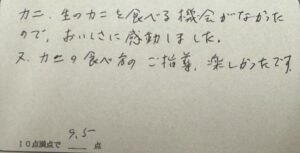 カニ、生のカニを食べる機会がなかった
ので、おいしさに感動しました。
又、カニの食べ方のご指導、楽しかったです。
9.5
10点満点で 点